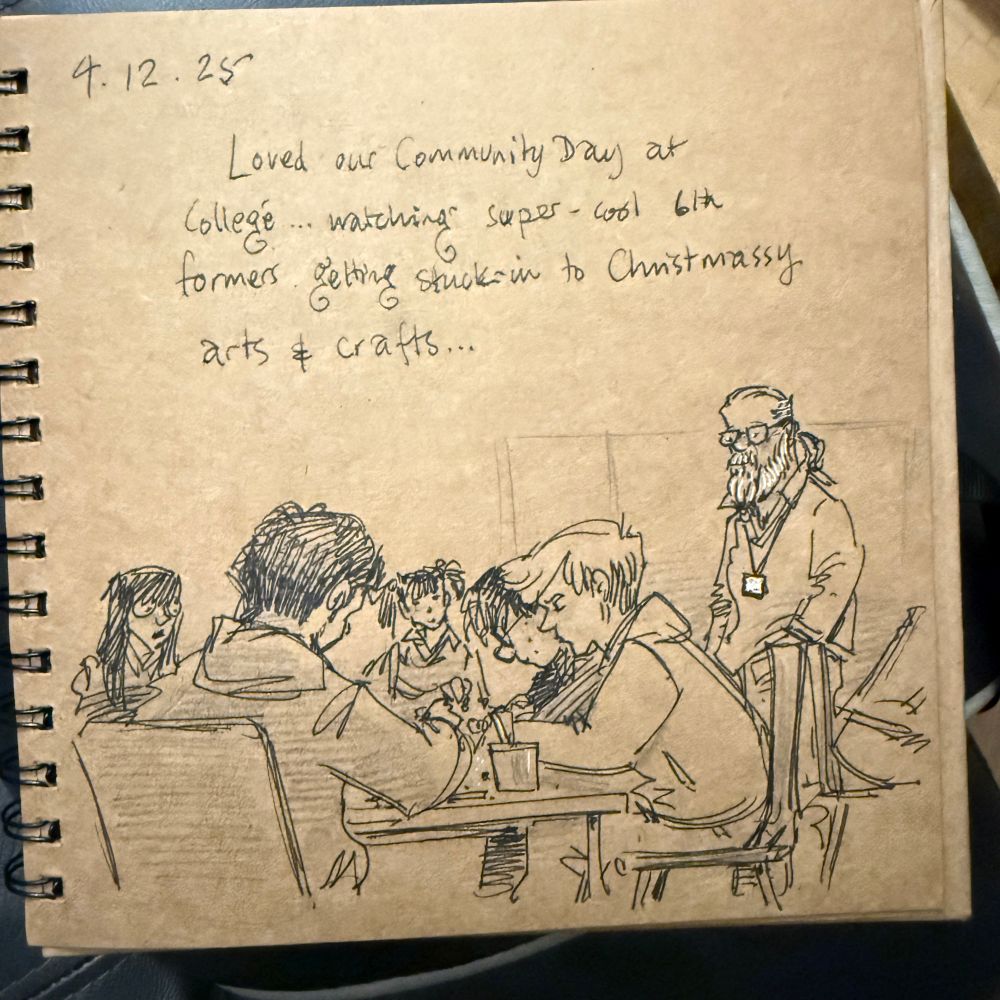 4.12.25
Loved our Community Day at
College... watching super-cool 6th
formers getting stuck-in to Christmassy
arts & crafts...